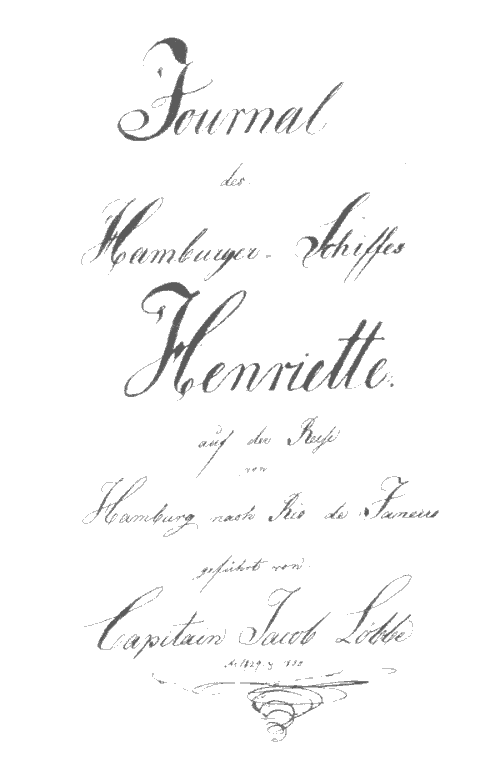 Journal
des
Hamburger-Schiffes
Henriette.
auf der Reise
von
Hamburg nach Rio de Janeiro
geführt von
Capitain Jacob Löbbe
1829